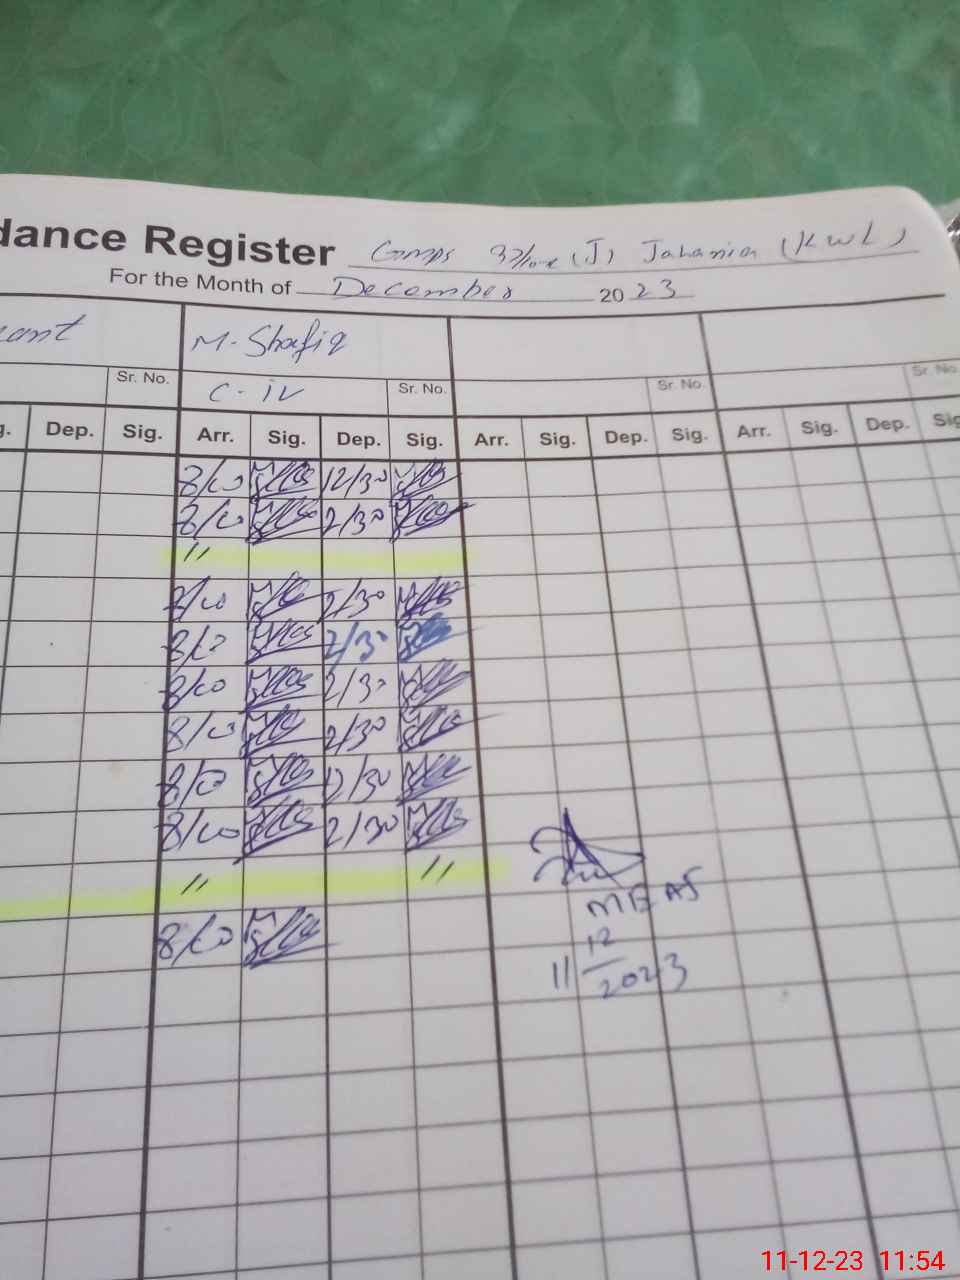 dance Register Comps (J) Jahania (KWL)
For the Month of December 2023
M. Shafiq
Sr. No. C-iv Sr. No. Sr. No. Sr. No.
g. Dep. Sig. Arr. Sig. Dep. Sig. Arr. Sig. Dep. Sig. Arr. Sig. Dep. Sig
8/00 12/30
8/00 2/30
"
8/00 2/30
8/00 2/30
8/00 2/30
8/00 2/30
8/00 12/30
8/00 2/30
" "
MEAS
8/00
11 12/2023
11-12-23 11:54